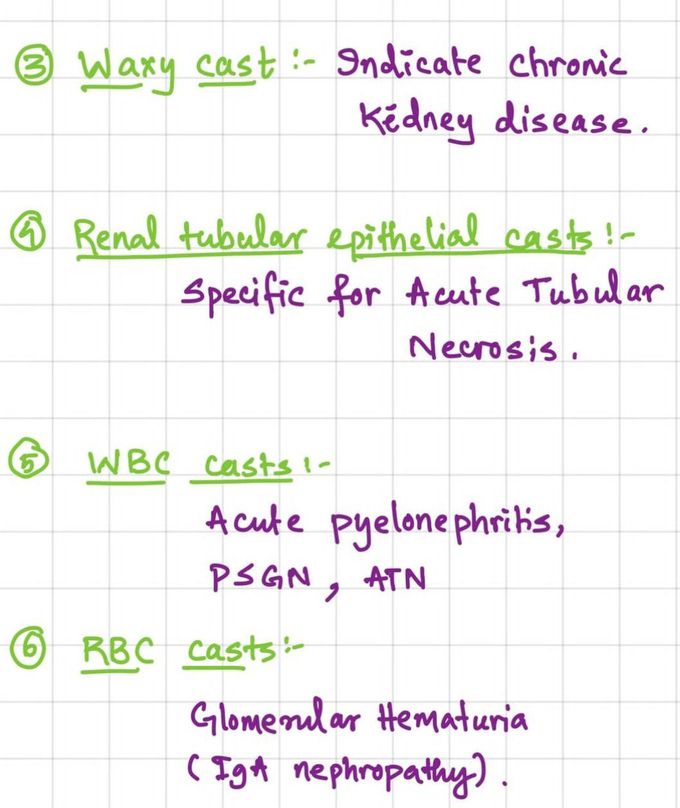 ③ Waxy cast :- Indicate chronic
Kidney disease.
④ Renal tubular epithelial casts :-
Specific for Acute Tubular
Necrosis.
⑤ WBC casts :-
Acute pyelonephritis,
PSGN, ATN
⑥ RBC casts :-
Glomerular Hematuria
(IgA nephropathy).